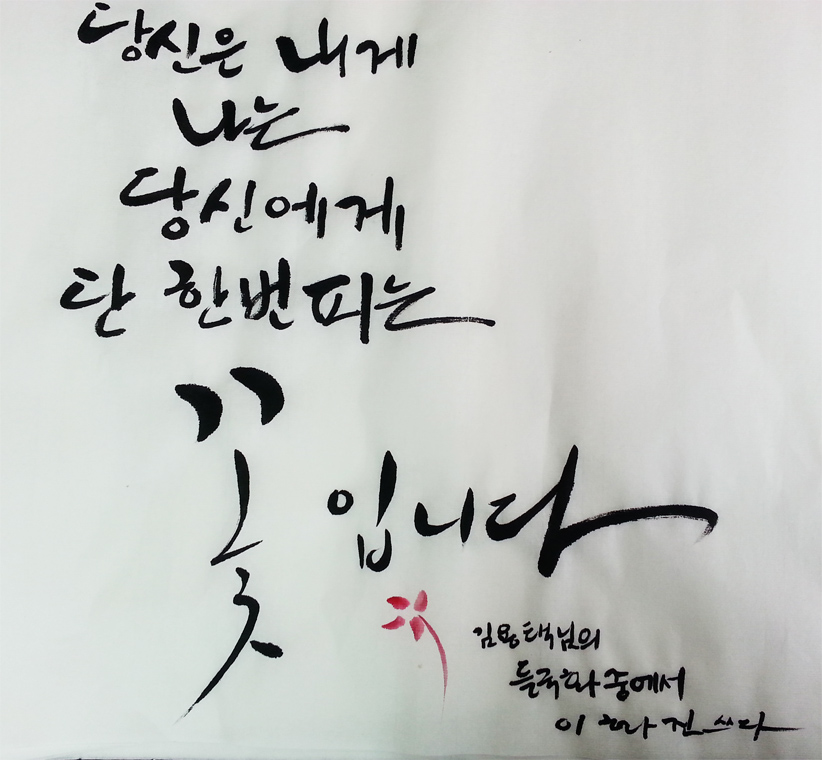 당신은 내게
나는
당신에게
단 한번 피는
꽃 입니다
김용택님의
들국화 중에서
이 화 진 쓰다